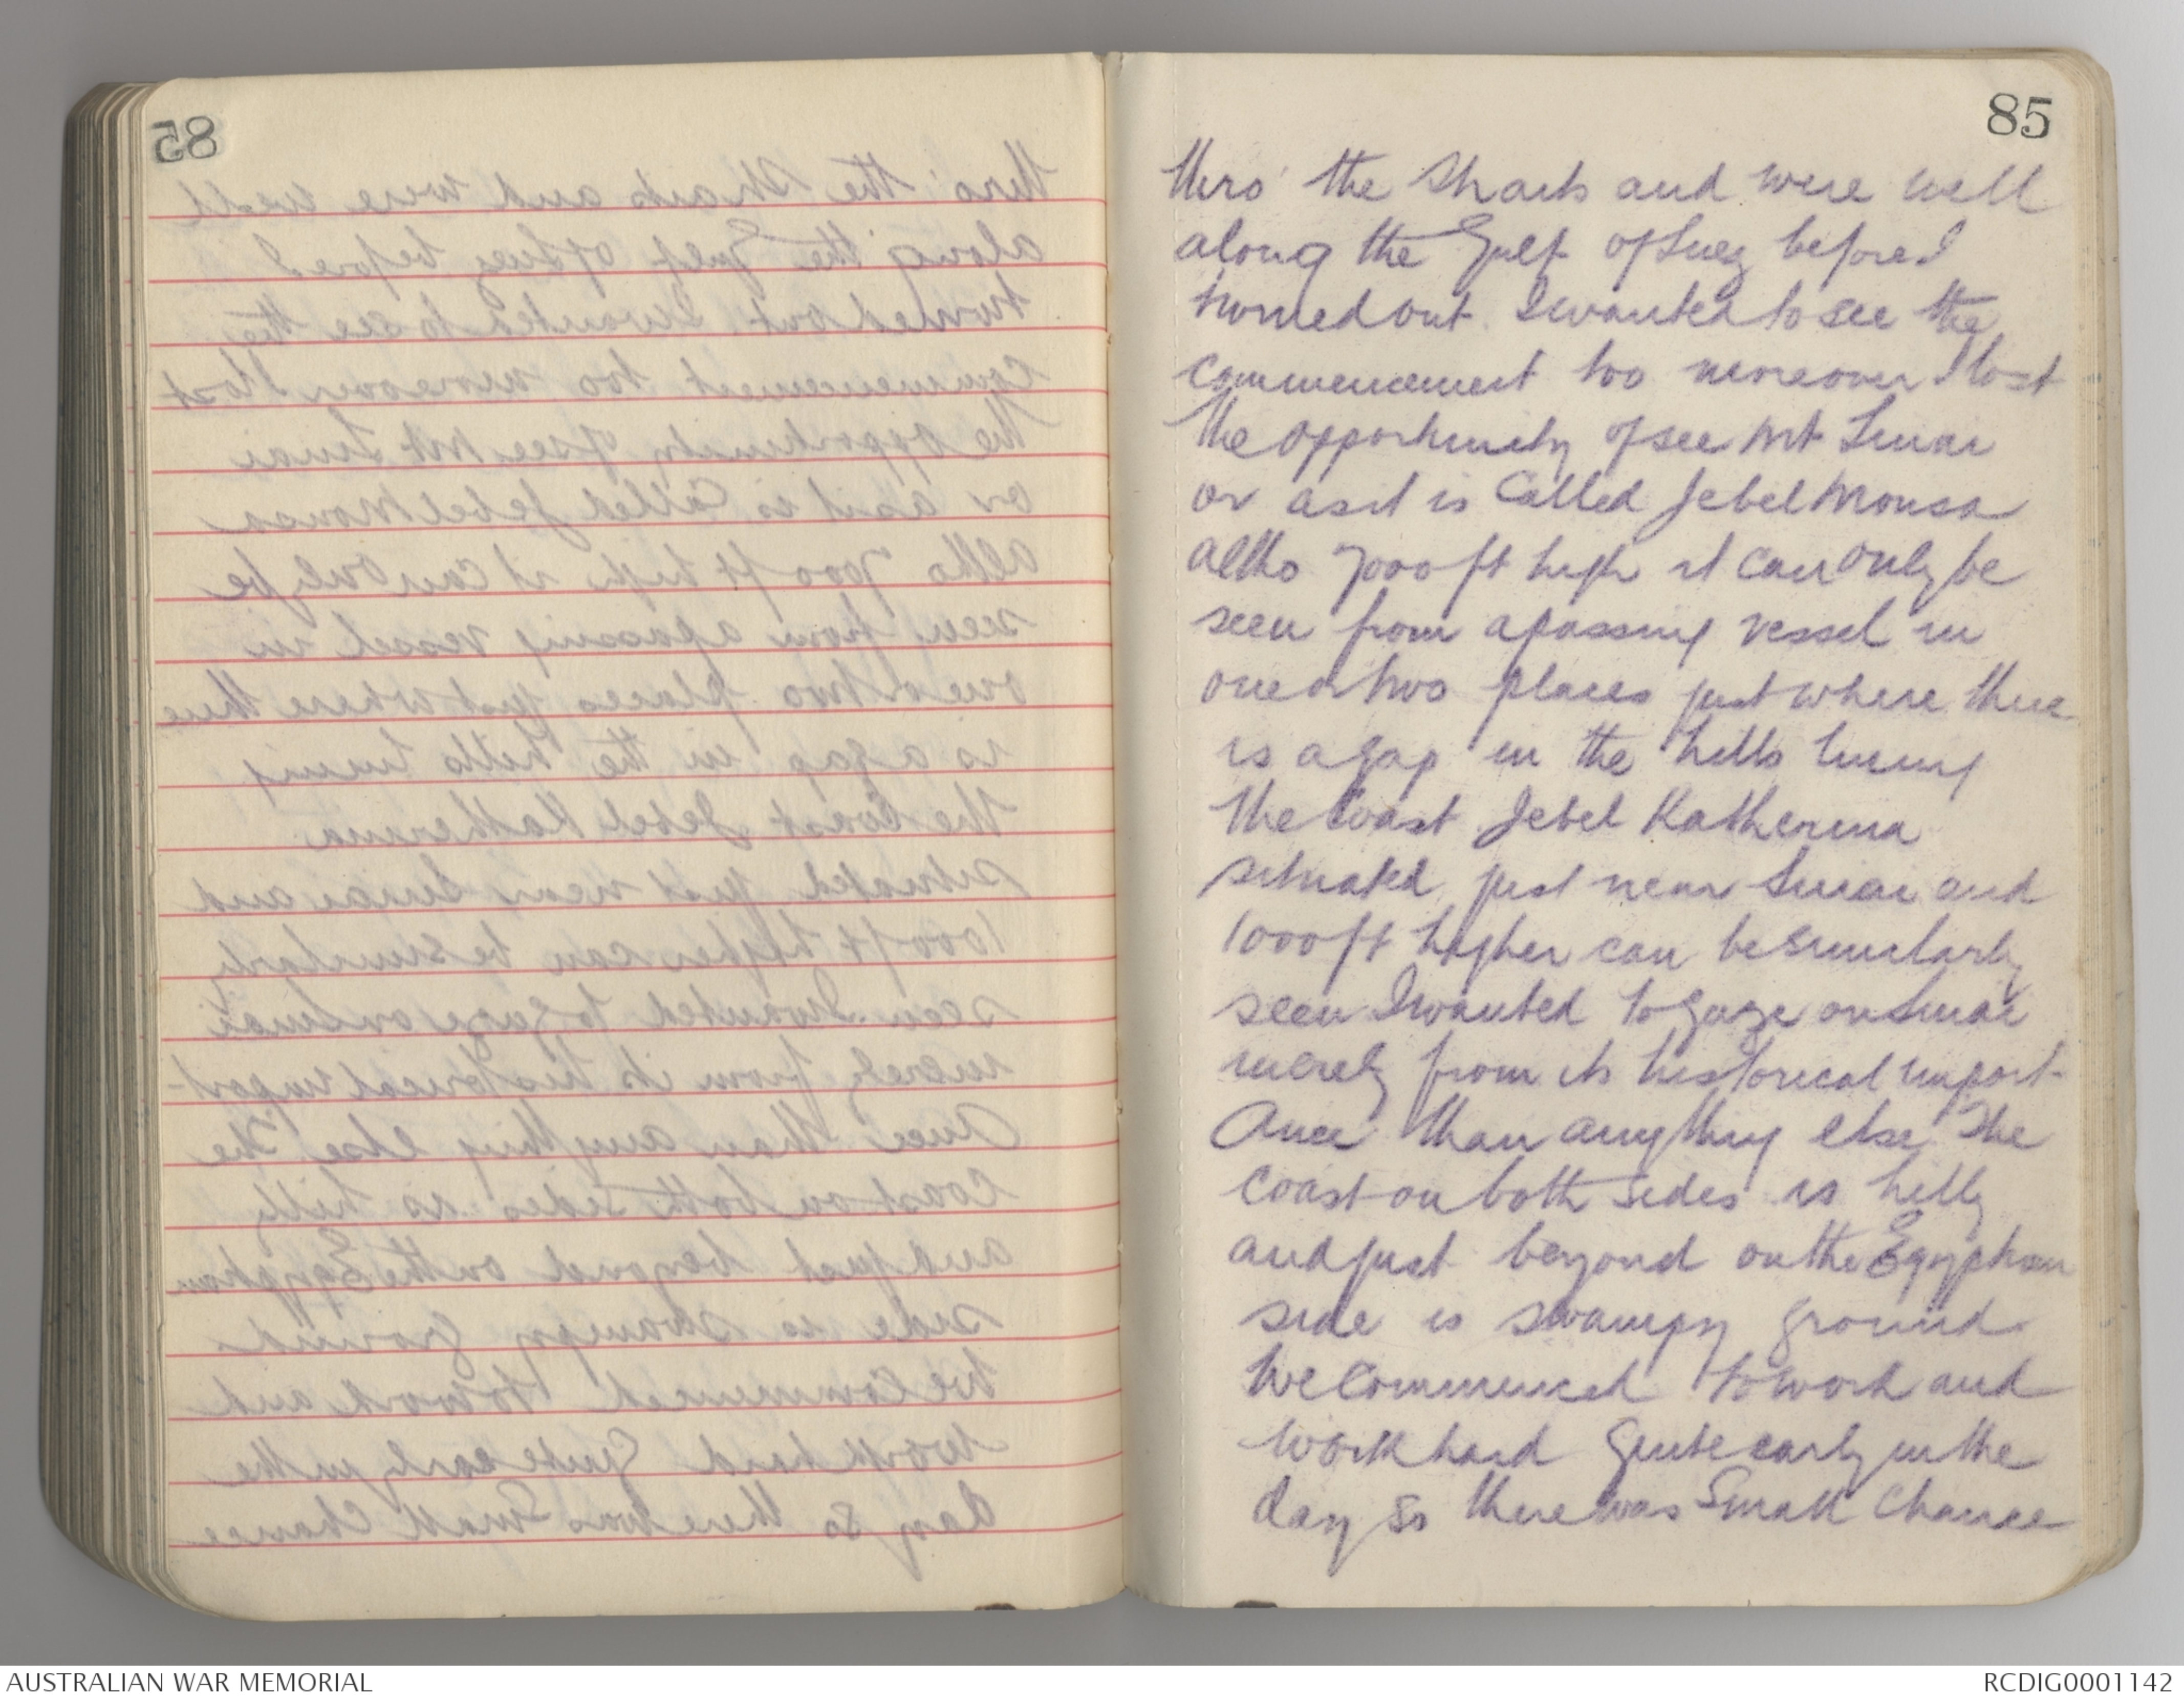 85
thro' the Straits and were well
along the Gulf of Suez before I
turned out. I wanted to see the
commencement too moreover I lost
the opportunity of see Mt Sinai
or as it is Called Jebel Mousa
altho 7000 ft high it can Only be
seen from a passing vessel in
one or two places just where there
is a gap in the hills lining
the Coast. Jebel Katherina
situated just near Sinai and
1000 ft higher can be similarly
seen I wanted to gaze on Sinai
merely from its historical import-
ance than anything else. The
Coast on both sides is hilly
and just beyond on the Egyptian
side is swampy ground
We Commenced to work and
work hard Quite early in the
day so there was Small Chance
AUSTRALIAN WAR MEMORIAL
RCDIG0001142